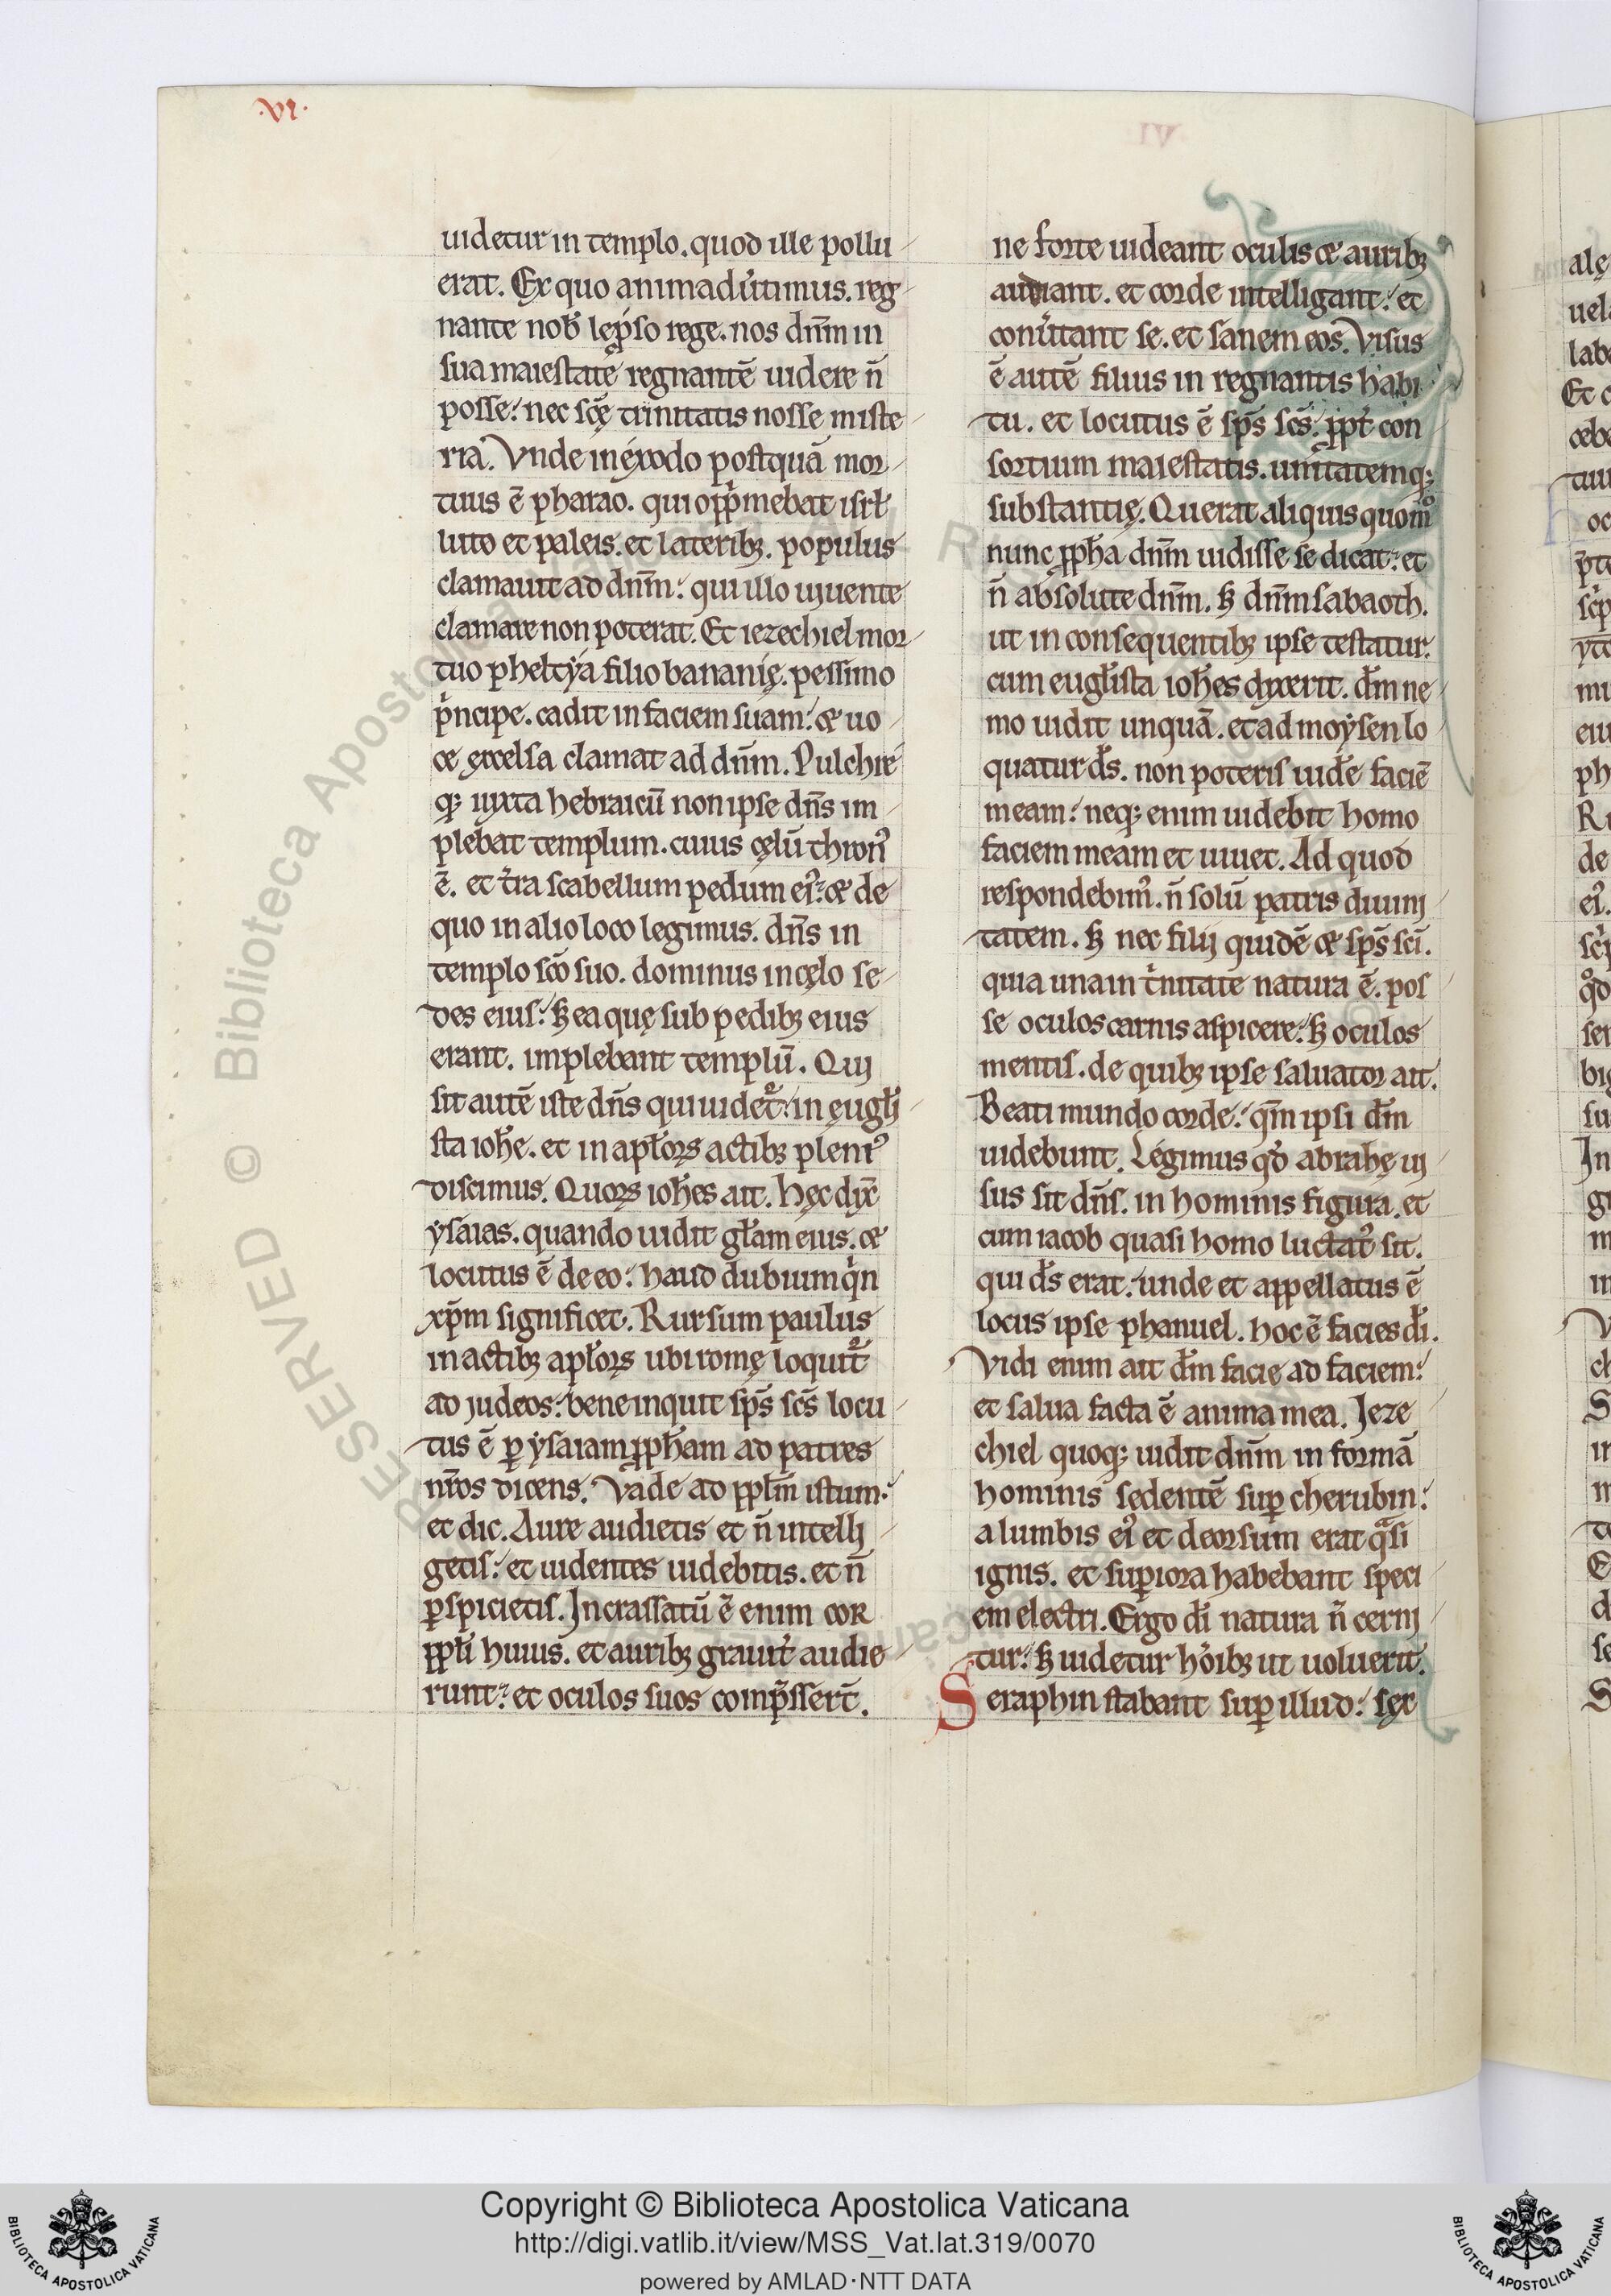 ·VI·
uidetur in templo. quod ille pollu
erat. Ex quo animaduͥtimus. reg
nante nob̄ lep̄so rege. nos dn̄m in
sua maiestate regnantē uidere n̄
posse: nec scę̄ trinitatis nosse miste
ria. Vnde in exodo postquā mor
tuus ē pharao. qui opp̍mebat isrl̄
luto et paleis. et laterib; populus
clamauit ad dn̄m: qui illo uiuente
clamare non poterat. Et iezechiel mor
tuo pheltẏa filio bananię. pessimo
p̍ncipe. cadit in faciem suam: & uo
ce excelsa clamat ad dn̄m. Pulchre
q; iuxta hebraicū non ipse dn̄s im
plebat templum. cuius cęlū thron᾽
ē. et t̍ra scabellum pedum ei᾽: & de
quo in alio loco legimus. dn̄s in
templo sc̄o suo. dominus in cęlo se
des eius: s; ea quę sub pedib; eius
erant. implebant templū. Qui
sit autē iste dn̄s qui uidet᷑: in eugl̄i
sta ioh̄e. et in apl̄oꝝ actib; pleni᾽
discimus. Quoꝝ ioh̄es ait. hęc dix̄
ẏsaias. quando uidit gl̄am eius. &
locutus ē de eo: haud dubium q̍n
xp̄m significet. Rursum paulus
in actib; apl̄oꝝ ubi romę loquit᷑
ad iudeos: bene inquit sp̄s sc̄s locu
tus ē ꝑ ẏsaiam ꝓph̄am ad patres
nr̄os dicens. Vade ad ppl̄m istum:
et dic. Aure audietis et n̄ intelli
getis: et uidentes uidebitis. et n̄
ꝑspicietis. Incrassatū ē enim cor
ppl̄i huius. et aurib; grauit̍ audie
runt: et oculos suos comp̄sser̄t.
ne forte uideant oculis & aurib;
audiant. et corde intelligant: et
conu̍tant se. et sanem eos. Visus
ē autē filius in regnantis habi
tu. et locutus ē sp̄s sc̄s: ꝓpt̍ con
sortium maiestatis. unitatemq;
substantię. Querat aliquis quom̊
nunc ꝓph̄a dn̄m uidisse se dicat: et
n̄ absolute dn̄m. s; dn̄m sabaoth.
ut in consequentib; ipse testatur:
cum eugl̄ista ioh̄es dixerit. dm̄ ne
mo uidit unquā. et ad moẏsen lo
quatur ds̄. non poteris uid̄e faciē
meam: neq; enim uidebit homo
faciem meam et uiuet. Ad quod
respondebim᾽. n̄ solū patris diuini
tatem. s; nec filii quidē & sp̄s sc̄i.
quia una in t̍nitate natura ē. pos
se oculos carnis aspicere: s; oculos
mentis. de quib; ipse saluator ait.
Beati mundo corde: qm̄ ipsi dm̄
uidebunt. Legimus qd̄ abrahę ui
sus sit dn̄s. in hominis figura. et
cum iacob quasi homo luctat᾽ sit.
qui ds̄ erat: unde et appellatus ē
locus ipse phanuel. hoc ē facies dī.
Vidi enim ait dm̄ facie ad faciem:
et salua facta ē anima mea. Ieze
chiel quoq; uidit dn̄m in formā
hominis sedentē suꝑ cherubin:
a lumbis ei᾽ et deorsum erat qᵃsi
ignis. et suꝑiora habebant speci
em electri. Ergo dī natura n̄ cerni
tur: s; uidetur ho̍ib; ut uoluerit.
Seraphin stabant suꝑ illud: sex
Copyright © Biblioteca Apostolica Vaticana
http://digi.vatlib.it/view/MSS_Vat.lat.319/0070
powered by AMLAD·NTT DATA
BIBLIOTECA APOSTOLICA VATICANA
BIBLIOTECA APOSTOLICA VATICANA